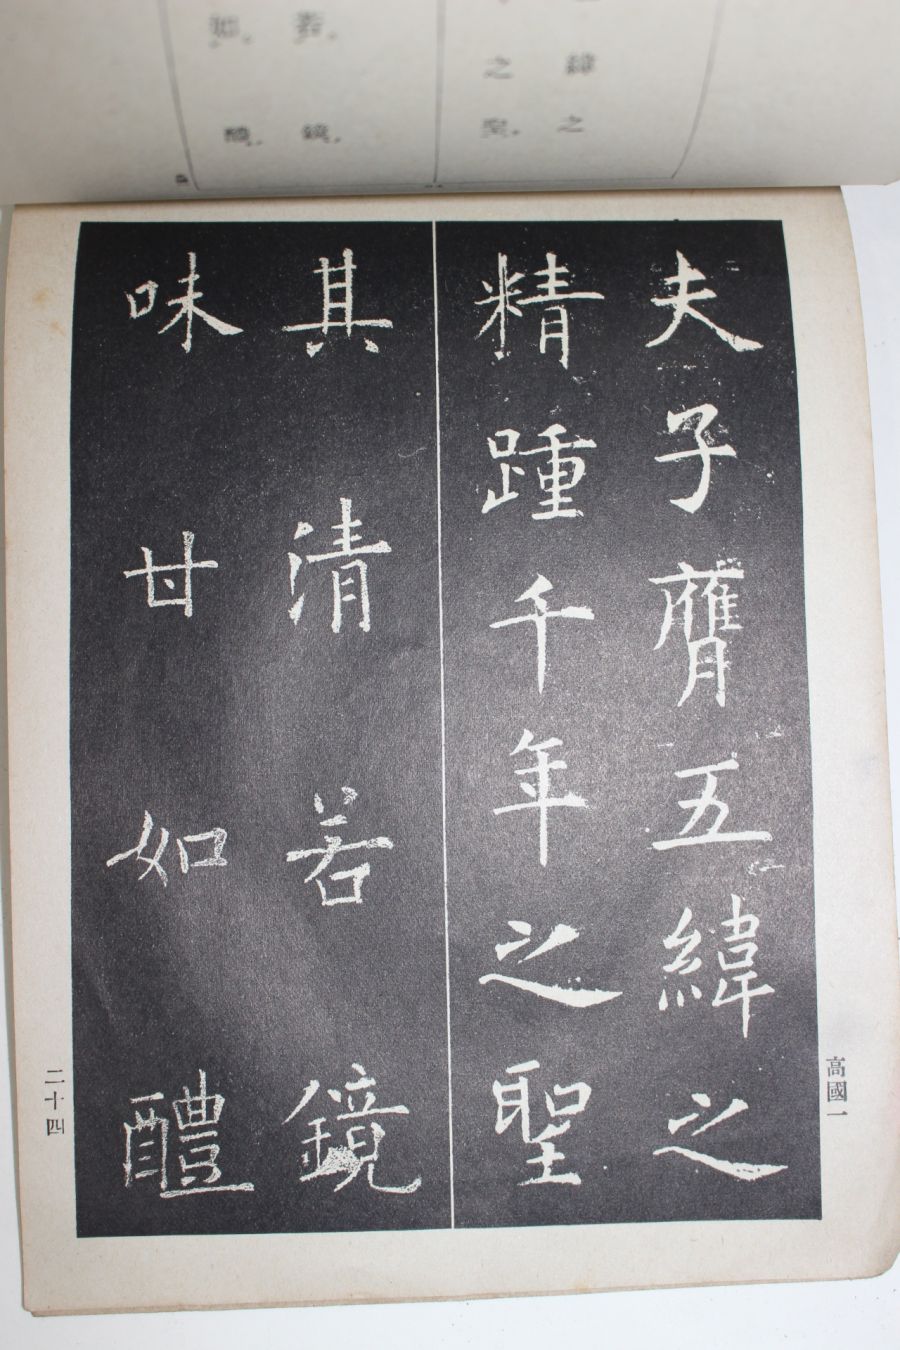 夫子膺五緯之
精踵千年之聖
其清若鏡
味甘如醴
高國一
二十四
緯之
之聖
若鏡
如醴